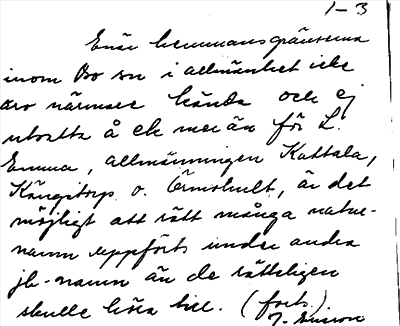 1-3
Enär hemmansgränserna
inom Bo sn i allmänhet icke
äro närmare kända och ej
utsatta å ek mer än för L.
Emma, allmänningen Kattala,
Kängstorp o. Örmohult, är det
möjligt att rätt många natur-
namn uppförts under andra
jb-namn än de rätteligen
skulle höra till. (forts.)